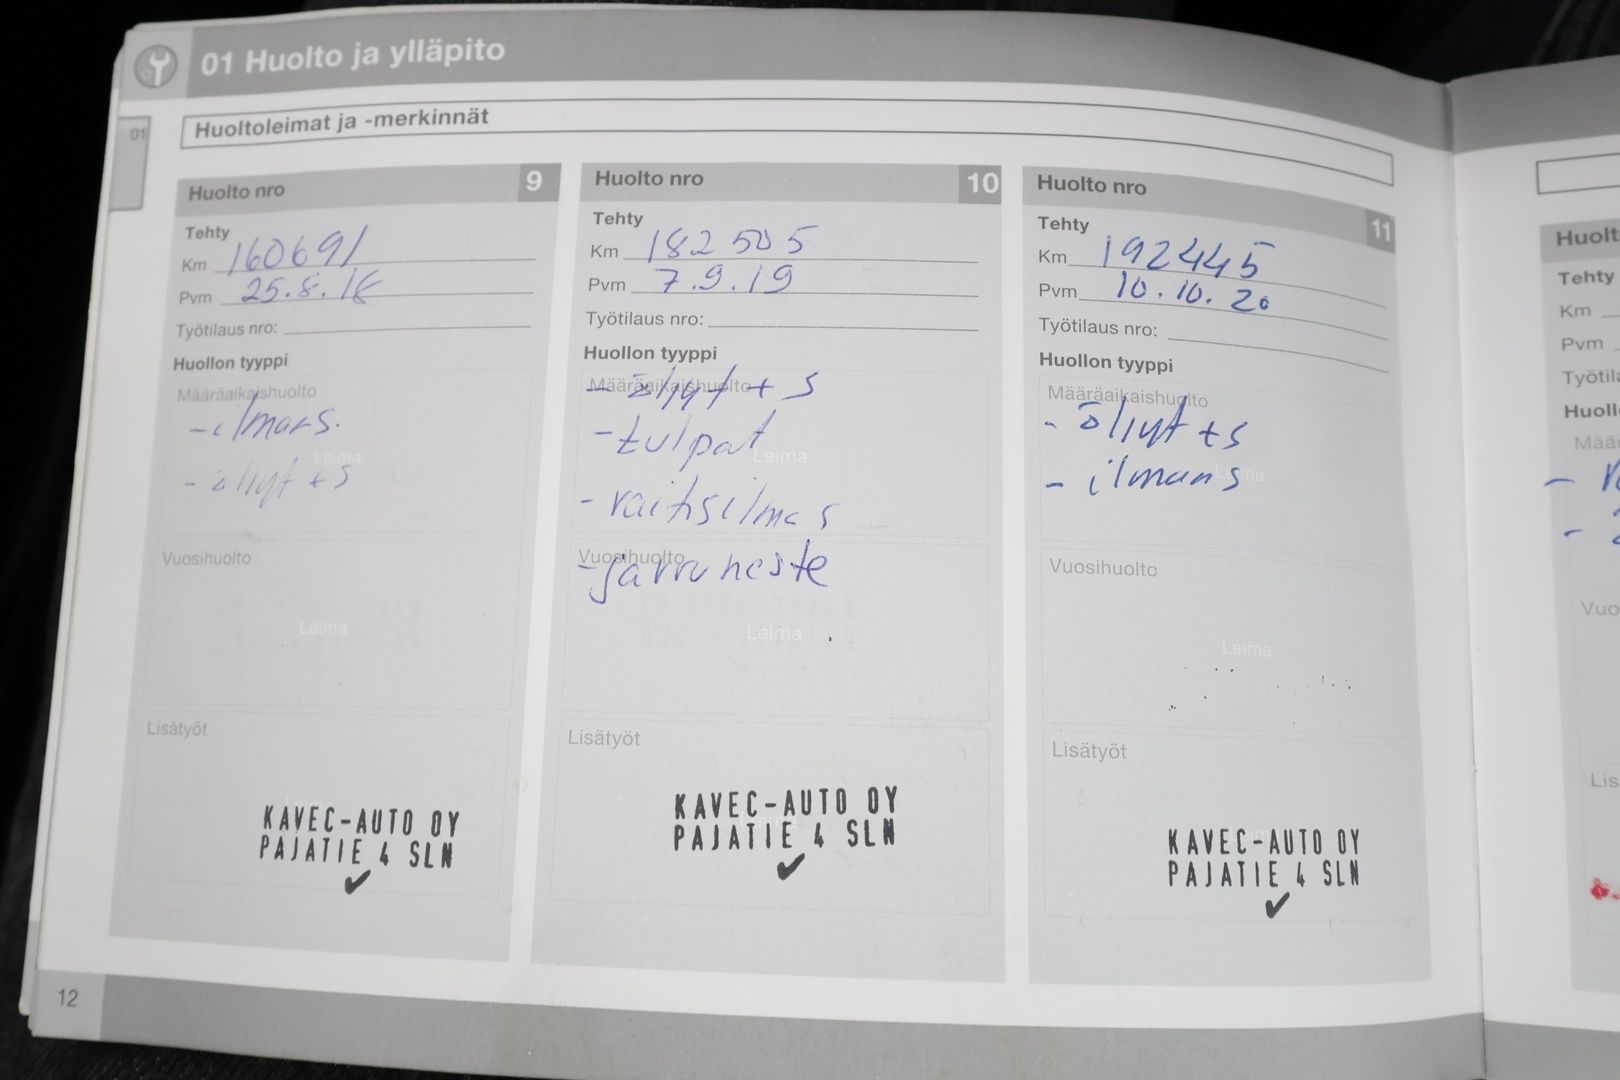 01 Huolto ja ylläpito
01
Huoltoleimat ja -merkinnät
Huolto nro 9
Tehty
Km 160691
Pvm 25.8.18
Työtilaus nro:
Huollon tyyppi
Määräaikaishuolto
- ilmans.
- öljyt + s
Leima
Vuosihuolto
Leima
Lisätyöt
KAVEC-AUTO OY
PAJATIE 4 SLN
Huolto nro 10
Tehty
Km 182505
Pvm 7.9.19
Työtilaus nro:
Huollon tyyppi
Määräaikaishuolto
- öljyt + s
- tulpat
Leima
- raitisilmas
Vuosihuolto
- jarruneste
Leima
Lisätyöt
KAVEC-AUTO OY
PAJATIE 4 SLN
Huolto nro 11
Tehty
Km 192445
Pvm 10.10.20
Työtilaus nro:
Huollon tyyppi
Määräaikaishuolto
- öljyt + s
- ilmans
Leima
Vuosihuolto
Leima
Lisätyöt
KAVEC-AUTO OY
PAJATIE 4 SLN
12
Tehty
Km
Pvm